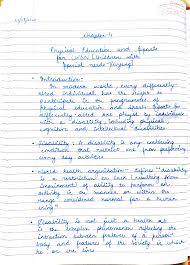 Chapter-4
Physical Education and Sports
for CWSN (Children with
Special needs
• Introduction:-
In modern world, every differently-
abled individual has the right to
participate in the programmes of
physical education and sports. Sports for
differently-abled are played by individuals
with a disability, including physical
cognitive and intellectual disabilities
• Disability: A disability is any continuing
condition that restrict one from performing
every day activities
• World health organisation:- defines "disability
is a restriction or lack (resulting from
impairment) of ability to perform an
activity in a manner or within the
range considered normal for a human
being"
• Disability is not just a health
is the complex phenomenon reflecting the
interaction between features of a person's
body and features of the society in which
he or she lives